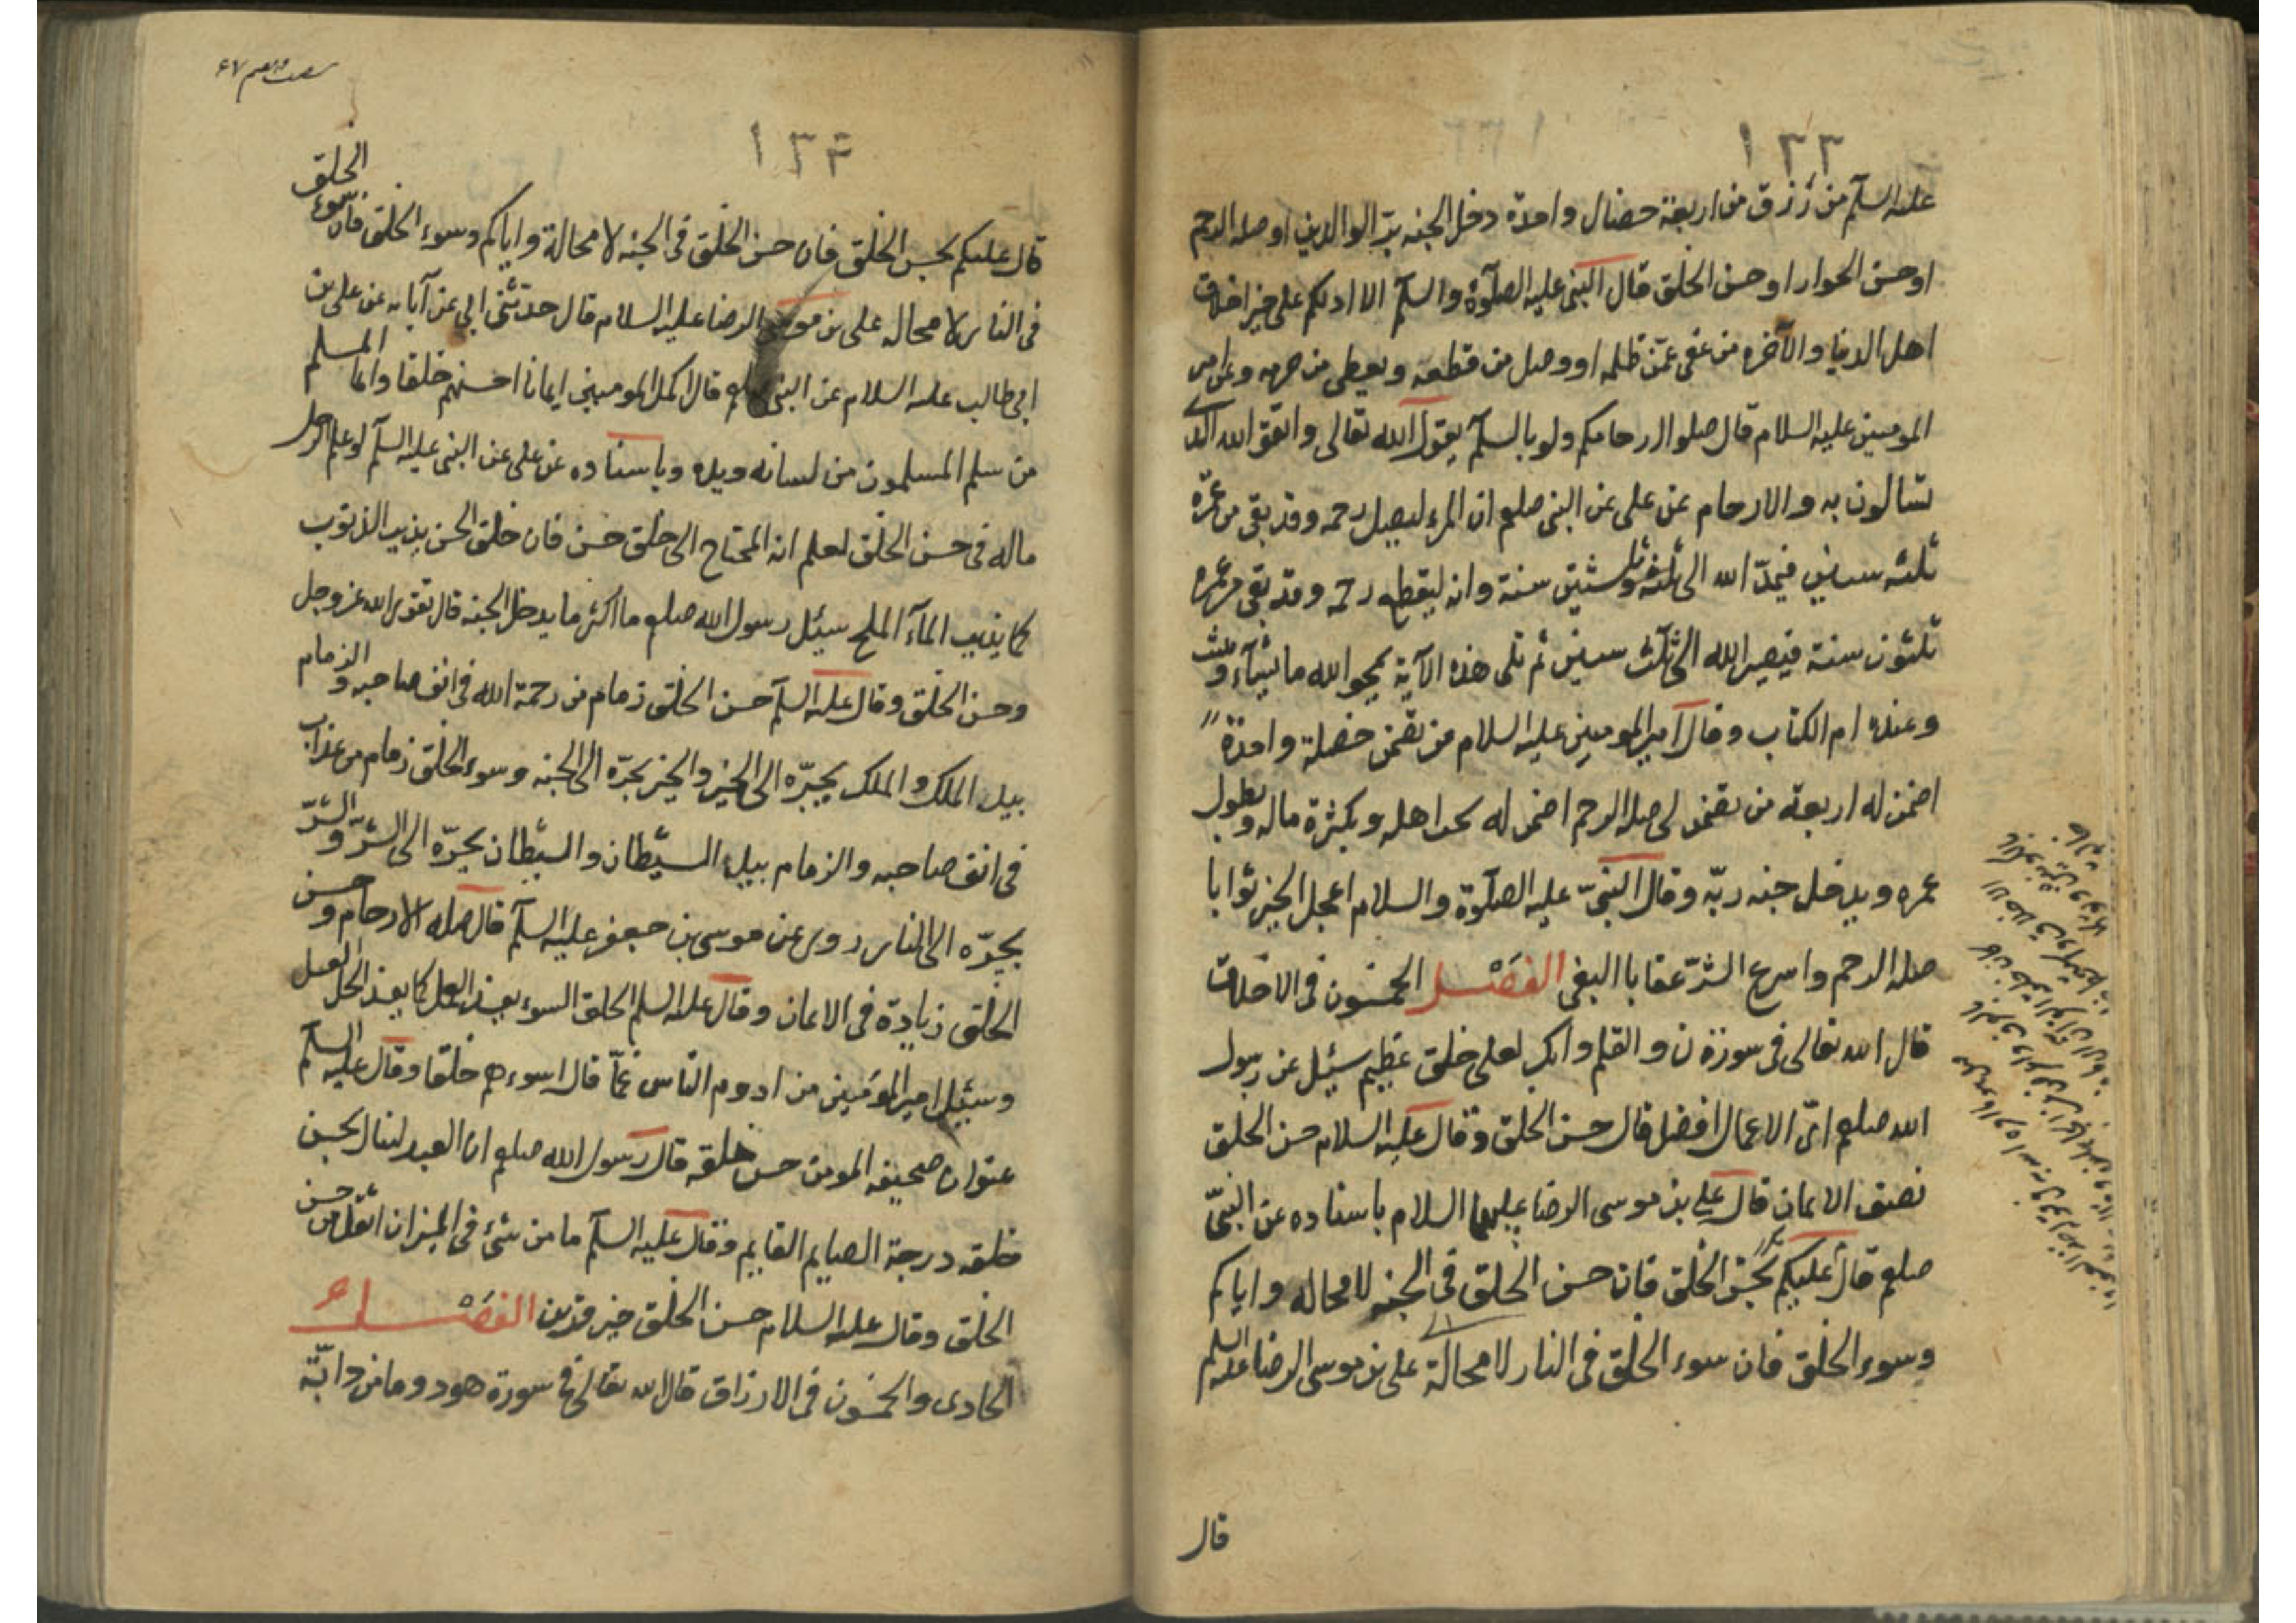 ١٣٣
عليه السلم من رزق من اربعة خصال واحدة دخل الجنه ببرّ الوالدين او صله الرحم
او حسن الجوار او حسن الخلق قال النبى عليه الصلوة والسلم الا ادلكم على خير اخلاق
اهل الدنيا والآخره من عفى عمّن ظلمه او وصل من قطعه ويعطى من حرمه وعن امير
المومنين عليه السلام قال صلوا ارحامكم ولو بالسلم يقول الله تعالى واتقو الله الذى
تسالون به والارحام عن على عن النبى صلعم ان المرء ليصل رحمه وقد بقى من عمره
ثلثه سنين فيمدّ الله الى ثلثه وثلثين سنة وانه ليقطع رحمه وقد بقى من عمره
ثلثون سنة فيصير الله الى ثلث سنين ثم تلى هذه الآية يمحو الله ما يشآء ويثبت
وعنده ام الكتاب وقال امير المومنين عليه السلام من تضمن خصلة واحدة
اضمن له اربعة من يضمن لى صله الرحم اضمن له بحب اهله وبكثرة ماله وبطول
عمره ويدخل جنه ربّه وقال النبىّ عليه الصلوة والسلام اعجل الخير ثوابا
صله الرحم واسرع الشرّ عقابا البغى الفصل الخمسون فى الاخلاق
قال الله تعالى فى سورة ن والقلم وانك لعلى خلق عظيم سئل عن رسول
الله صلعم اىّ الاعمال افضل قال حسن الخلق وقال عليه السلام حسن الخلق
نصف الايمان قال على بن موسى الرضا عليهما السلام باسناده عن النبىّ
صلعم قال عليكم بحسن الخلق فان حسن الخلق فى الجنه لا محاله واياكم
وسوء الخلق فان سوء الخلق فى النار لا محالة على بن موسى الرضا عليه السلم
قال
١٣٤
قال عليكم بحسن الخلق فان حسن الخلق فى الجنه لا محالة واياكم وسوء الخلق فان سوء الخلق
فى النار لا محاله على بن موسى الرضا عليه السلام قال حدثنى ابى عن آبايه عن على بن
ابى طالب عليه السلام عن النبى صلعم قال اكمل المومنين ايمانا احسنهم خلقا وانما المسلم
من سلم المسلمون من لسانه ويده وباسناده عن على عن النبى عليه السلم لو علم الرجل
ماله فى حسن الخلق لعلم انه المحتاج الى خلق حسن فان خلق الحسن يذيب الذنوب
كما يذيب المآء الملح سئل رسول الله صلعم ما اكثر ما يدخل الجنه قال تقوى الله عز وجل
وحسن الخلق وقال عليه السلم حسن الخلق زمام من رحمة الله فى انف صاحبه والزمام
بيد الملك والملك يجرّه الى الخير والخير يجرّه الى الجنه وسوء الخلق زمام من عذاب
فى انف صاحبه والزمام بيد الشيطان والشيطان يجرّه الى الشرّ والشرّ
يجرّه الى النار روى عن موسى بن جعفر عليه السلم قال صله الارحام وحسن
الخلق زيادة فى الايمان وقال عليه السلم الخلق السوء يفسد العمل كما يفسد الخل العسل
وسئل امير المؤمنين من ادوم الناس غمّا قال اسوءهم خلقا وقال عليه السلم
عنوان صحيفه المومن حسن خلقه قال رسول الله صلعم ان العبد لينال بحسن
خلقه درجة الصايم القايم وقال عليه السلم ما من شئ فى الميزان اثقل من حسن
الخلق وقال عليه السلام حسن الخلق خير قرين الفصل
الحادى والخمسون فى الارزاق قال الله تعالى فى سورة هود وما من دابّة